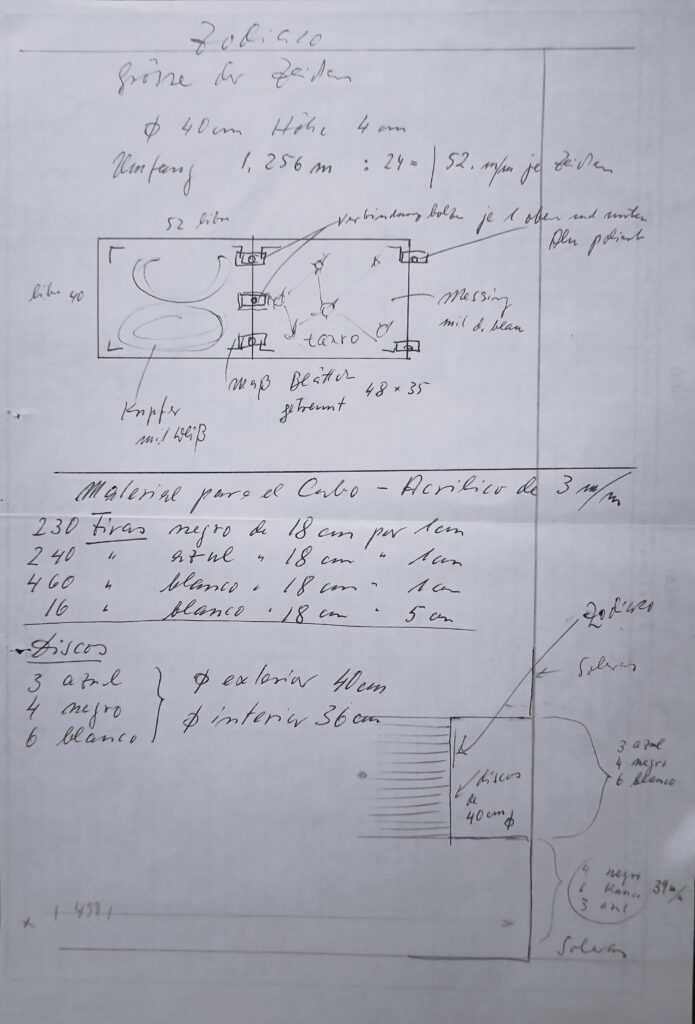 Zodiaco
Grösse der Zeichen
ϕ 40 cm Höhe 4 cm
Umfang 1,256 m : 24 = | 52. m/m je Zeichen
52 libre
Verbindung bolzen je 1 oben und unten
Alu poliert
libre 40
Messing
mit d. blau
tauro
Maß Blätter 48 x 35
getrennt
Kupfer
mit Weiß
Material para el Cubo - Acrilico de 3 m/m
230 Tiras negro de 18 cm por 1 cm
240 " azul " 18 cm " 1 cm
460 " blanco " 18 cm " 1 cm
16 " blanco " 18 cm " 5 cm
Zodiaco
- Discos
3 azul
4 negro
6 blanco
ϕ exterior 40 cm
ϕ interior 36 cm
3 azul
4 negro
6 blanco
discos
de
40 cm ϕ
4 negro
6 blanco
3 azul
39 m/m
450